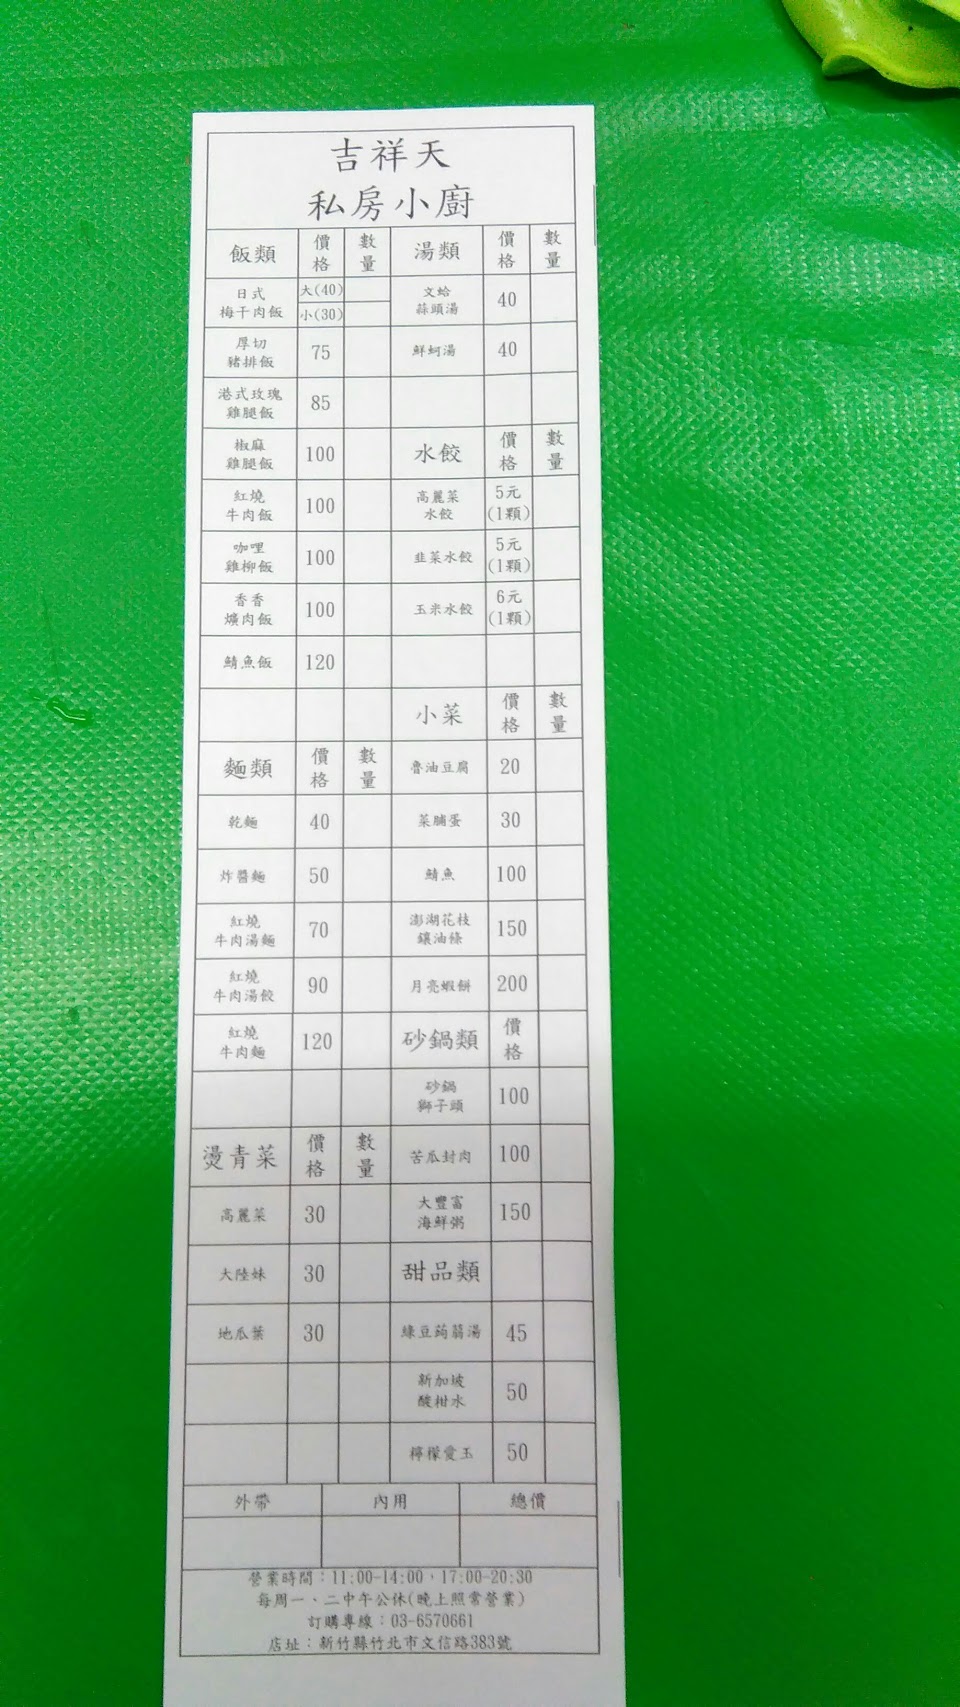 吉祥天
私房小廚
飯類 價格 數量 湯類 價格 數量
日式梅干肉飯 大(40) 小(30) 文蛤蒜頭湯 40
厚切豬排飯 75 鮮蚵湯 40
港式玫瑰雞腿飯 85
椒麻雞腿飯 100 水餃 價格 數量
紅燒牛肉飯 100 高麗菜水餃 5元(1顆)
咖哩雞柳飯 100 韭菜水餃 5元(1顆)
香香爌肉飯 100 玉米水餃 6元(1顆)
鯖魚飯 120
小菜 價格 數量
麵類 價格 數量 魯油豆腐 20
乾麵 40 菜脯蛋 30
炸醬麵 50 鯖魚 100
紅燒牛肉湯麵 70 澎湖花枝鑲油條 150
紅燒牛肉湯餃 90 月亮蝦餅 200
紅燒牛肉麵 120 砂鍋類 價格
砂鍋獅子頭 100
燙青菜 價格 數量 苦瓜封肉 100
高麗菜 30 大豐富海鮮粥 150
大陸妹 30 甜品類
地瓜葉 30 綠豆蒟蒻湯 45
新加坡酸柑水 50
檸檬愛玉 50
外帶 內用 總價
營業時間：11:00-14:00，17:00-20:30
每周一、二中午公休(晚上照常營業)
訂購專線：03-6570661
店址：新竹縣竹北市文信路383號